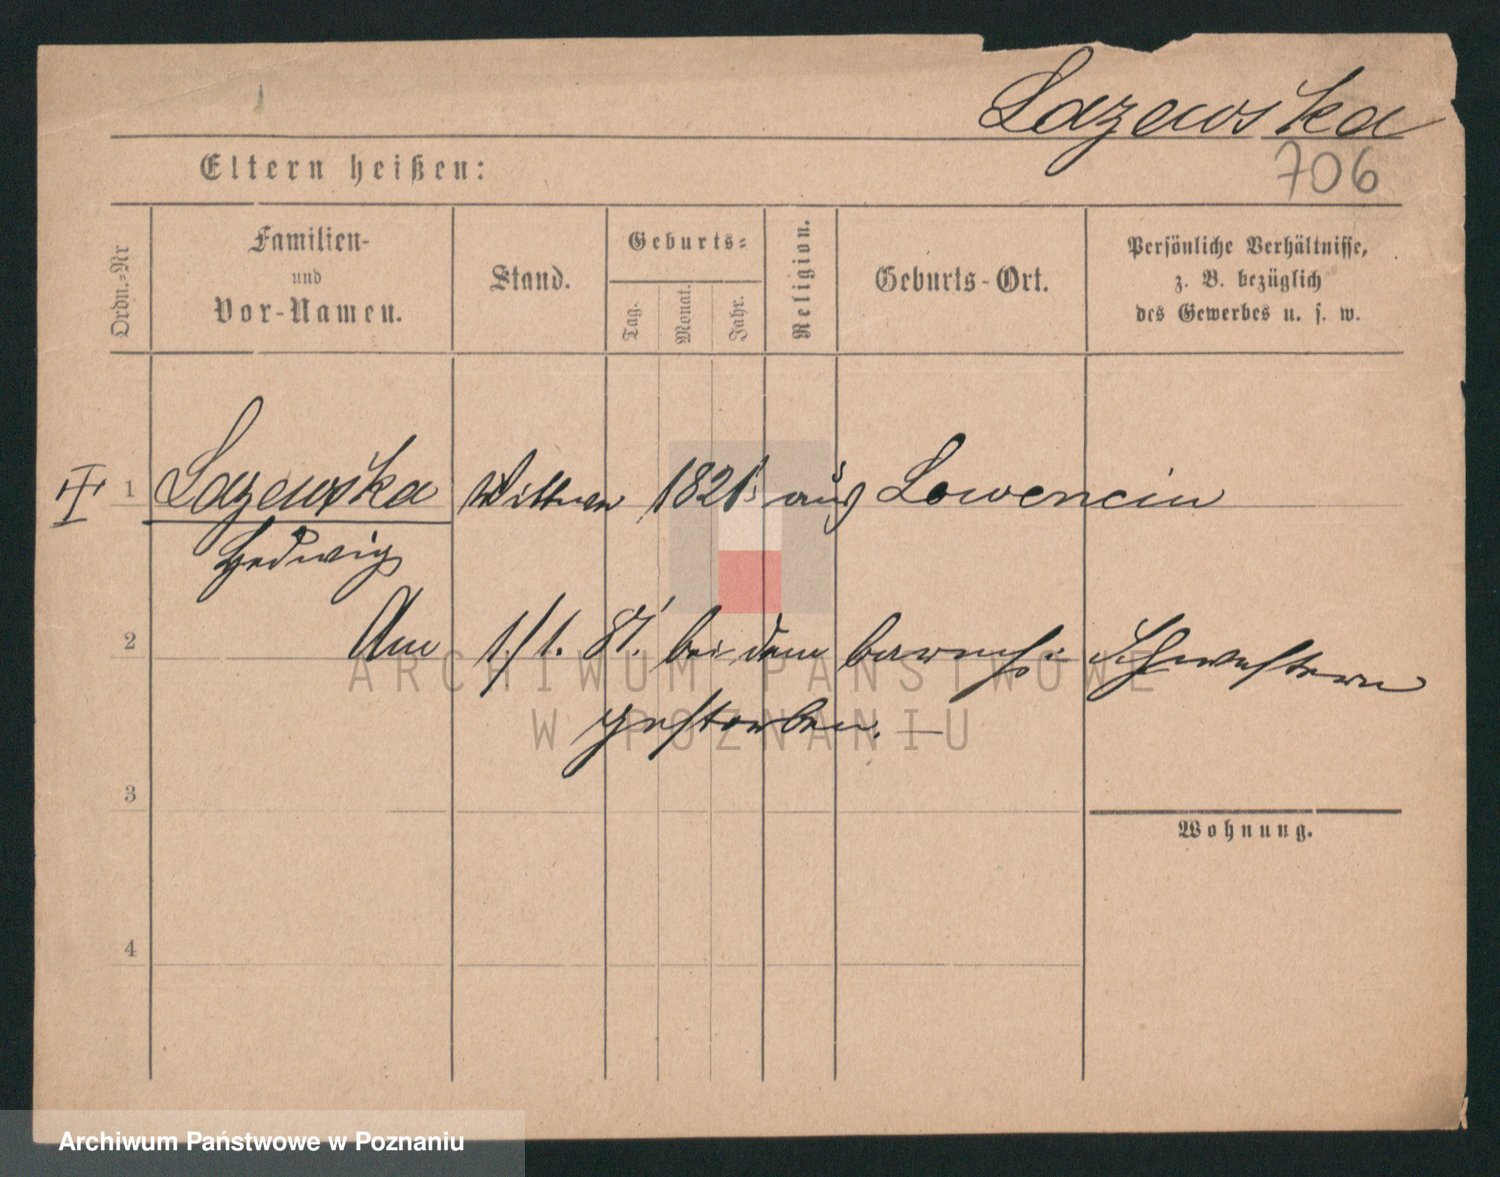 Lazewska
706
Eltern heißen:
Ordn.-Nr
Familien-
und
Vor-Namen.
Stand.
Geburts-
Tag.
Monat.
Jahr.
Religion.
Geburts-Ort.
Persönliche Verhältnisse,
z. B. bezüglich
des Gewerbes u. s. w.
1 Lazewska Wittwe 1821 aus Lowencin
Hedwig
2 Am 1./1. 87. bei den barmh: Schwestern
gestorben. —
ARCHIWUM PAŃSTWOWE
W POZNANIU
3
Wohnung.
4
Archiwum Państwowe w Poznaniu